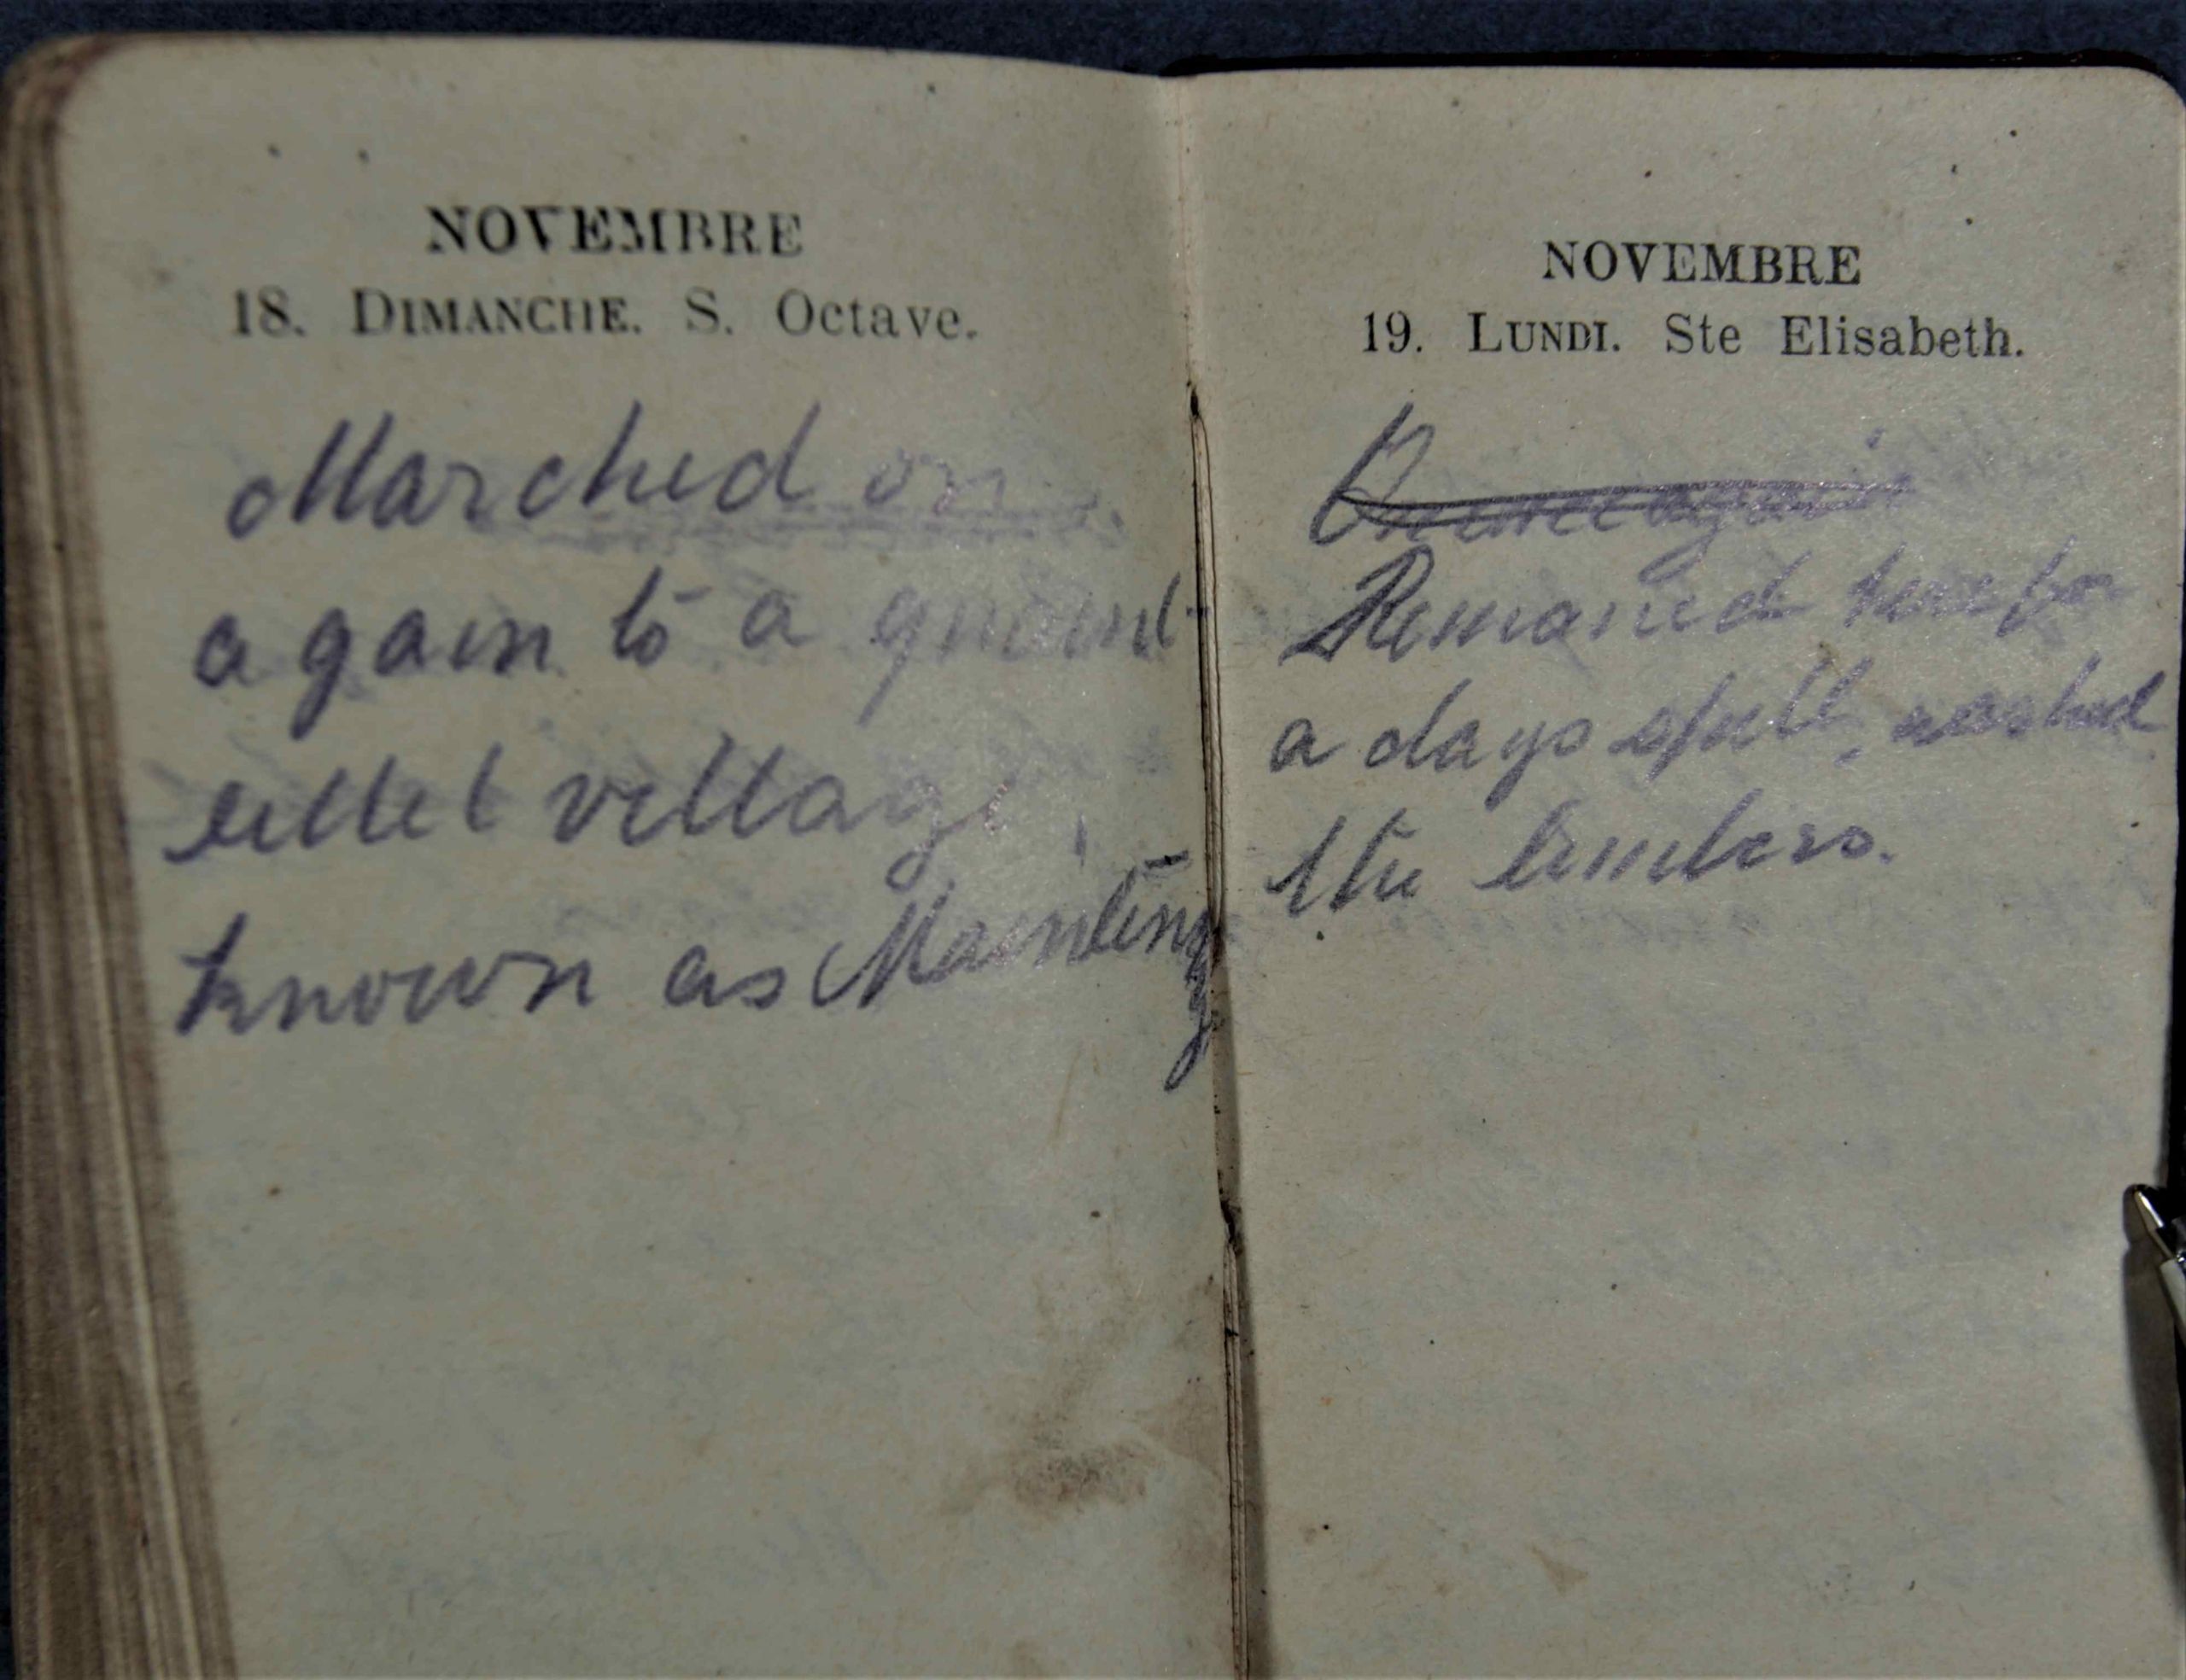 NOVEMBRE
18. DIMANCHE. S. Octave.
Marched on
again to a
littel village,
known as
NOVEMBRE
19. LUNDI. Ste Elisabeth.
Once again
Remained here for
a days spell, washed
the limbers.